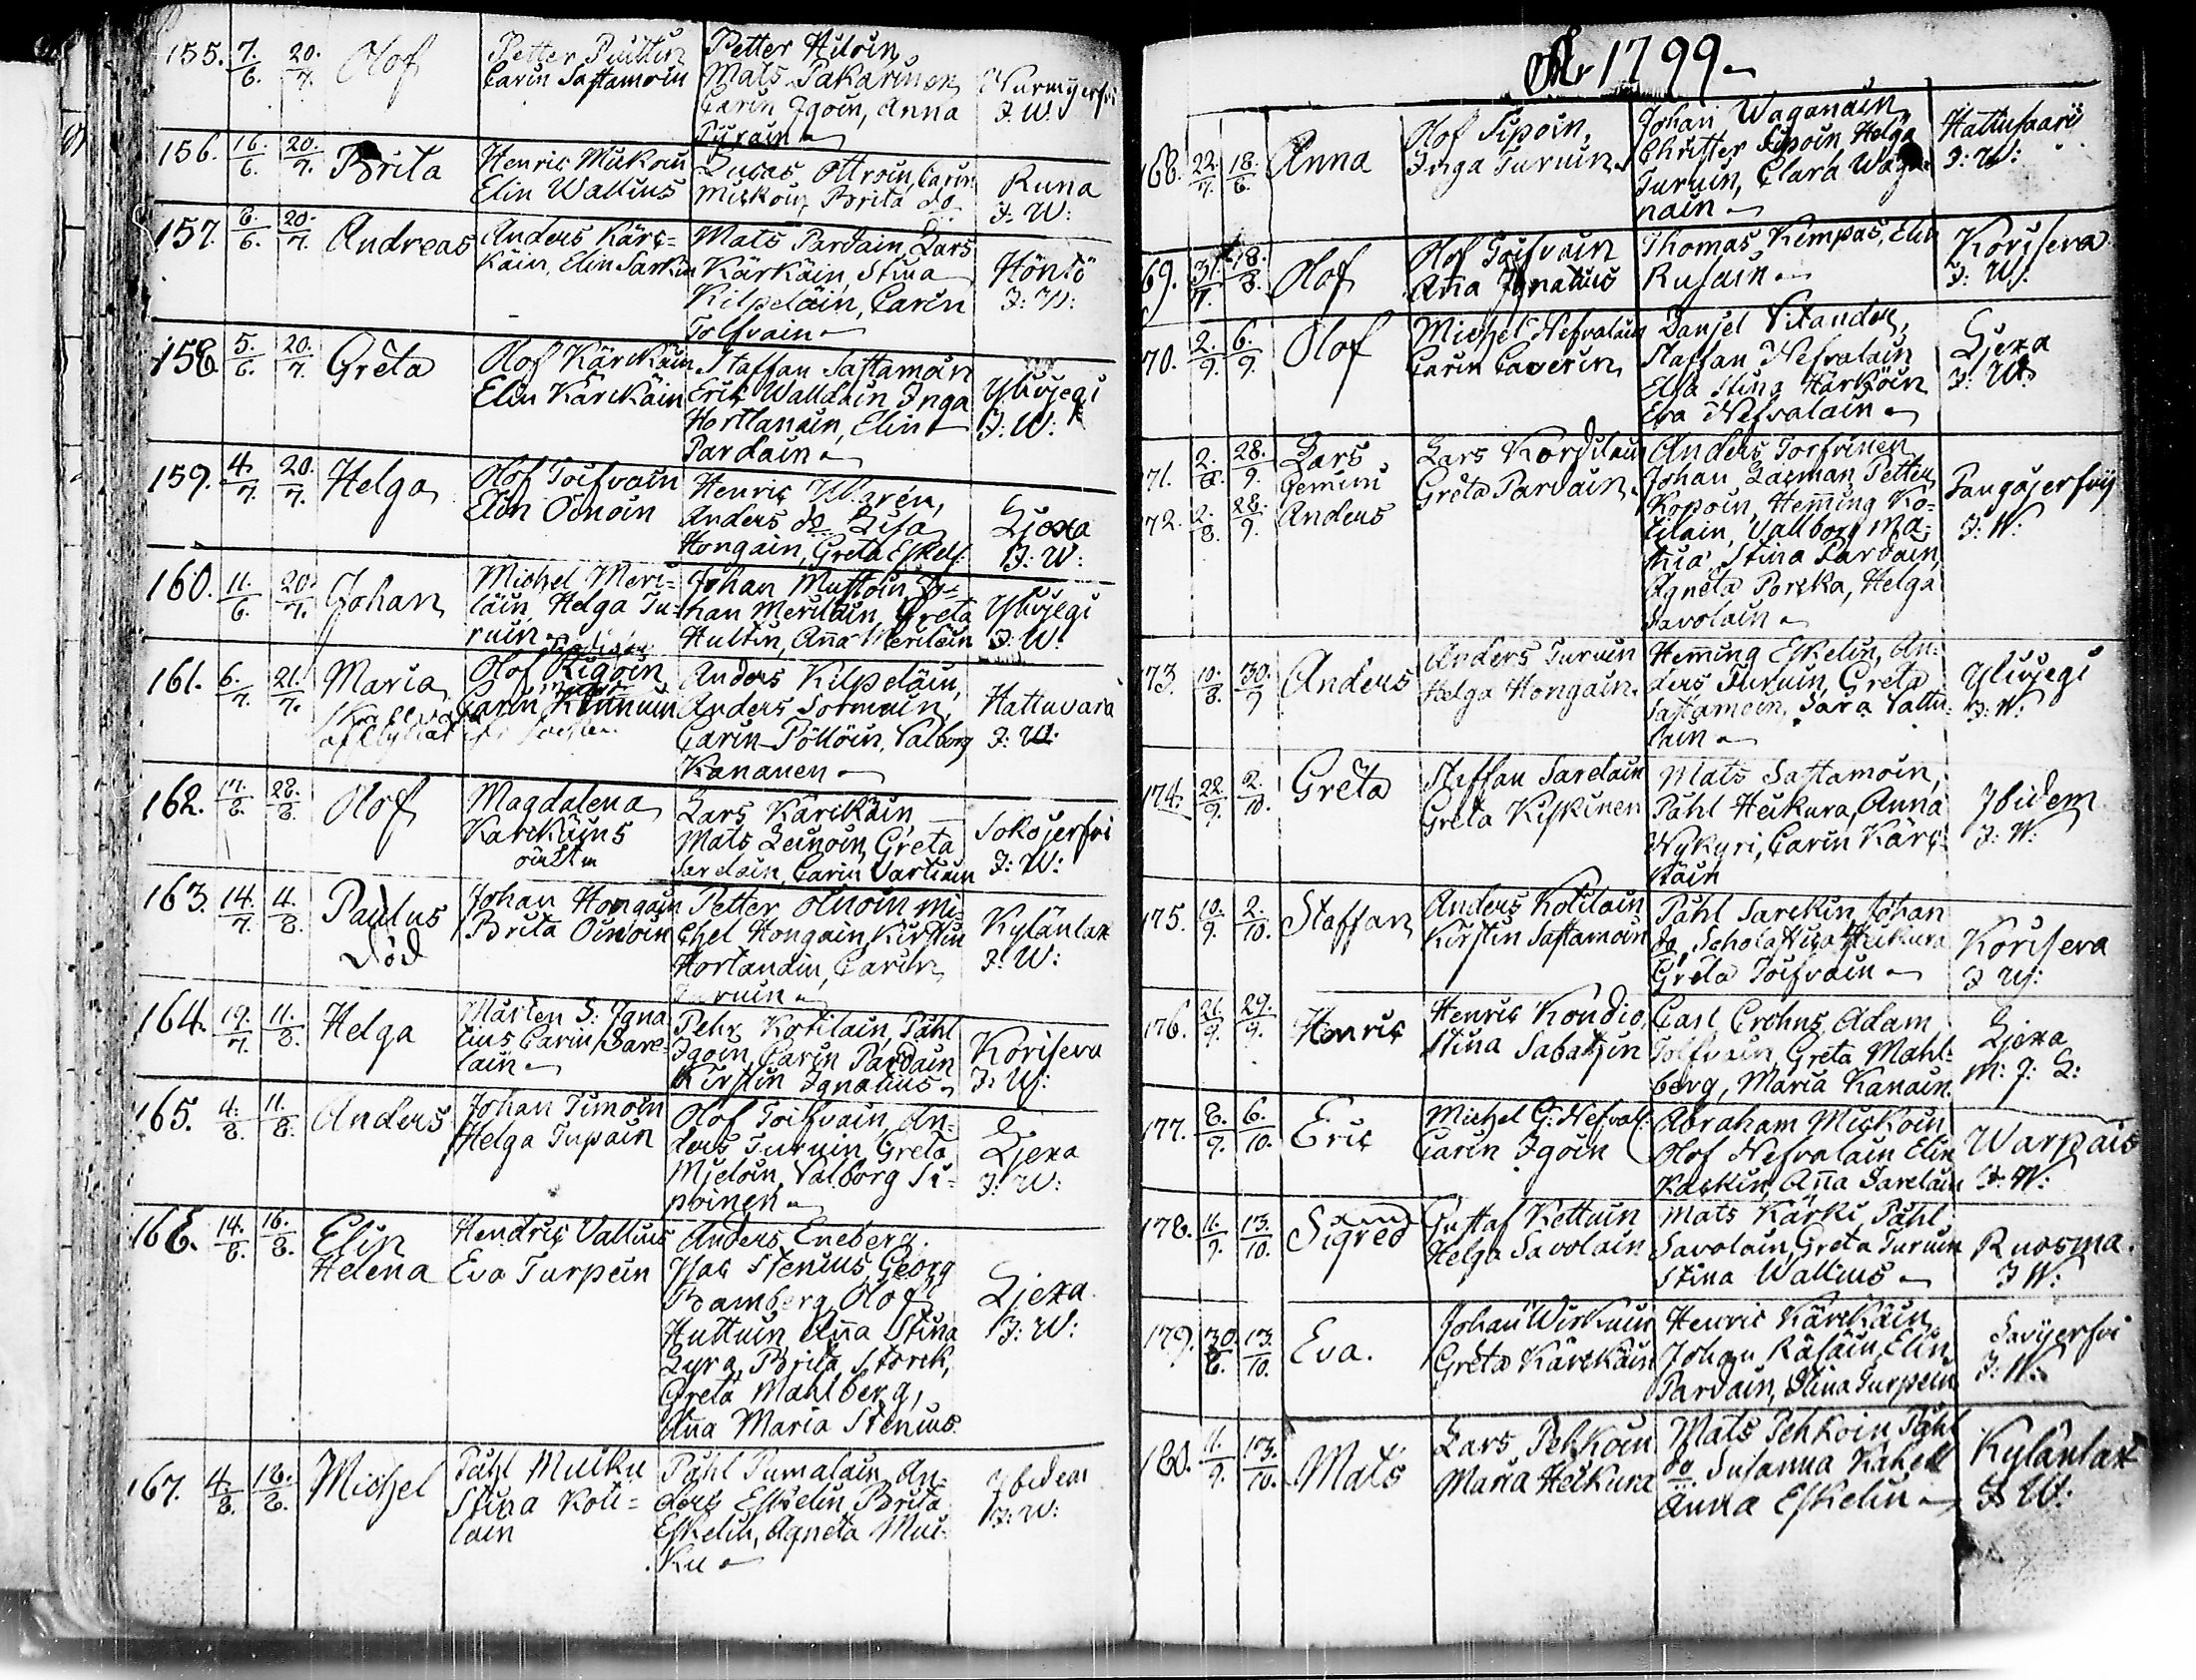 155. 7/6. 20./7. Olof
Petter Puittin
Carin Sastamoin
Petter Hiloin,
Mats Pakarinen
Carin Igoin, Anna
Pyrain
Nurmyerfvi
J: W:
156. 16./6. 20./7. Brita
Henric Mickoin
Elin Wallius
Lucas Ottroin, Carin
Mickoin, Brita do
Runa
J: W:
157. 8./6. 20./7. Andreas
Anders Kärc=
käin, Elin Sarkin
Mats Pardain, Lars
Kärkäin, Stina
Kilpeläin, Carin
Tolfvain
Höntö
J: W:
158. 5./6. 20./7. Greta
Olof Kärckäin
Elin Kärckäin
Staffan Sastamoin
Eric Walldain Inga
Hortlanain, Elin
Pardain
Ylivjegi
J: W:
159. 4./7. 20./7. Helga
Olof Toifvain
Elin Oinoin
Henric
Anders do Lisa
Hongain, Greta Eskel:
Ljexa
J: W:
160. 11./6. 20./7. Johan
Michel Meri=
läin, Helga Tu=
ruin
Johan Mustoin, Jo=
han Meriläin, Greta
Hultin, Aña Meriläin
Ylivjegi
J: W:
161. 6./7. 21./7. Maria
Olof Rigoin
Carin Kinnuin
Anders Kilpeläin,
Anders Sormuin,
Carin Pöllöin, Valborg
Kananen
Hattuvara
J: W:
162. 17./8. 28./8. Olof
Magdalena
Karckäins
oäckta
Lars Kärckäin
Mats Leinoin, Greta
Sarelain, Carin Vartiain
Sokojerfvi
J: W:
163. 14./7. 4./8. Paulus
död
Johan Hongain
Brita Oinoin
Petter Olnoin Mi=
chel Hongain, Kirstin
Hortanain, Carin
Turuin
Kylänlax
J: W:
164. 19./7. 11./8. Helga
Mårten S: Igna
tius Carin Sare=
lain
Pehr Kotilain, Påhl
Igoin, Carin Pardain
Kirstin Ignatius
Koriseva
J: W:
165. 4./8. 11./8. Anders
Johan Timoin
Helga Tupain
Olof Toifvain, An=
ders Turuin Greta
Mjeloin, Valborg Si=
poinen
Ljexa
J: W:
166. 14./8. 16./8. Elin
Helena
Hendric Vallius
Eva Turpein
Anders Eneberg.
Isac Stenius, Georg
Bamberg, Olof
Huttuin Aña Stina
Lyra, Brita Storck,
Greta Mahlberg,
Aña Maria Stenius
Ljexa.
J: W:
167. 4./8. 18./8. Michel
Påhl Muiku
Stina Koti=
lain
Påhl Pumalain, An=
ders Eskelin, Brita
Eskelin, Agneta Mui=
ku
Ibidem
J: W:
Åhr 1799
168. 22./7. 18./8. Anna
Olof Sipoin,
Inga Turuin
Johan Waganain
Christer Sipoin, Helga
Turuin, Clara Waga=
nain
Hattusaari
J: W:
69. 31./7. 18./8. Olof
Olof Toifvain
Aña Ignatius
Thomas Kempas, Elin
Rusain
Koriseva
J: W:
70. 2./9. 6./9. Olof
Michel Nefvalain
Carin Caverin
Danjel Vitander,
Staffan Nefvalain
Elsa Stina Härköin
Eva Nefvalain
Ljexa
J: W:
71. 2./8. 28./9. Lars
Gemini
72. 2./8. 28./9. Anders
Lars Kordilain
Greta Pardain
Anders Torfvinen
Johan Lagman Petter
Kopoin, Hem̃ing Ko=
tilain, Valborg Ma=
tria, Stina Pardain,
Agneta Porcka, Helga
Savolain
Pangajerfvi
J: W:
173. 10./8. 30./9 Anders
Anders Turuin
Helga Hongain.
Hem̃ing Eskelin, An=
ders Turuin, Greta
Sastamoin, Sara Vattu=
lain
Ylivjegi
J: W:
174. 22./9. 2./10. Greta
Staffan Sarelain
Greta Kiskinen
Mats Sastamoin,
Påhl Heikura, Anna
Nykyri, Carin Kärc=
käin
Ibidem
J: W:
175. 10./9. 2./10. Staffan
Anders Kotilain
Kirstin Sastamoin
Påhl Sarckin, Johan
do, Scholastica Heikura
Greta Toifvain
Koriseva
J W:
176. 21./9. 29./9. Henric
Henric Kondio,
Stina Sabatzin
Carl Crohns, Adam
Tolfvain, Greta Mahl=
berg, Maria Kanain.
Ljexa
M: J: L:
177. 8./9. 6./10. Eric
Michel G: Nefval:
Carin Igoin
Abraham Mickoin
Olof Nefvalain Elin
Kackin, Aña Sarelain
Warpais
J: W:
178. 11./9. 13./10. Sigred
Gustaf Kettuin
Helga Savolain
Mats Kärki, Påhl
Savolain, Greta Turuin
Stina Wallius
Ruosma.
J W:
179. 30./8. 13./10. Eva.
Johan Wirkuin
Greta Kärckäin
Henric Kärckäin,
Johan Räsäin, Elin
Pardain, Stina Turpein
Savijerfvi
J: W:
180. 11./9. 13./10. Mats
Lars Pehkoin
Maria Heikura
Mats Pehkoin Påhl
do Susanna Kahell
Anna Eskelin
Kylänlax
J W: